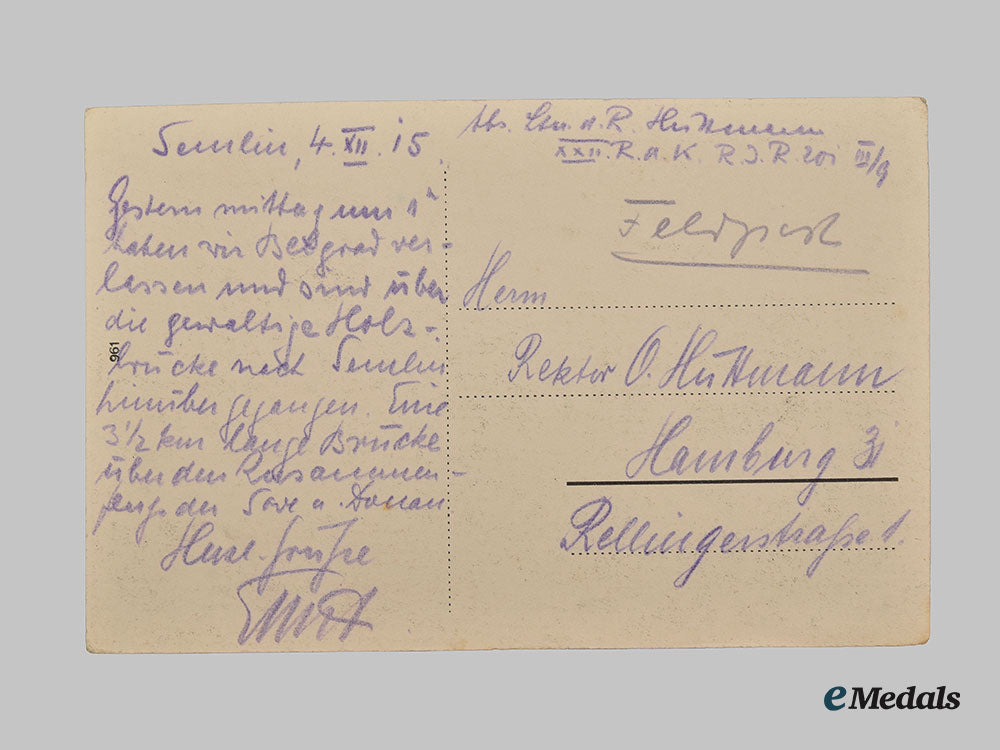 Semlin, 4. XII. 15.
Gestern mittag um 1°
haben wir Belgrad ver-
lassen und sind über
die gewaltige Holz-
brücke nach Semlin
hinübergegangen. Eine
3 1/2 km lange Brücke
über den Zusammen-
der Save u. Donau
Herzl. Grüße
961
Abs. Ltn. d. R. Hüttmann
XXII. R.A.K. R.J.R. 201 III/9
Feldpost
Herrn
Rektor O. Hüttmann
Hamburg 31
Rellingerstraße 1.
eMedals